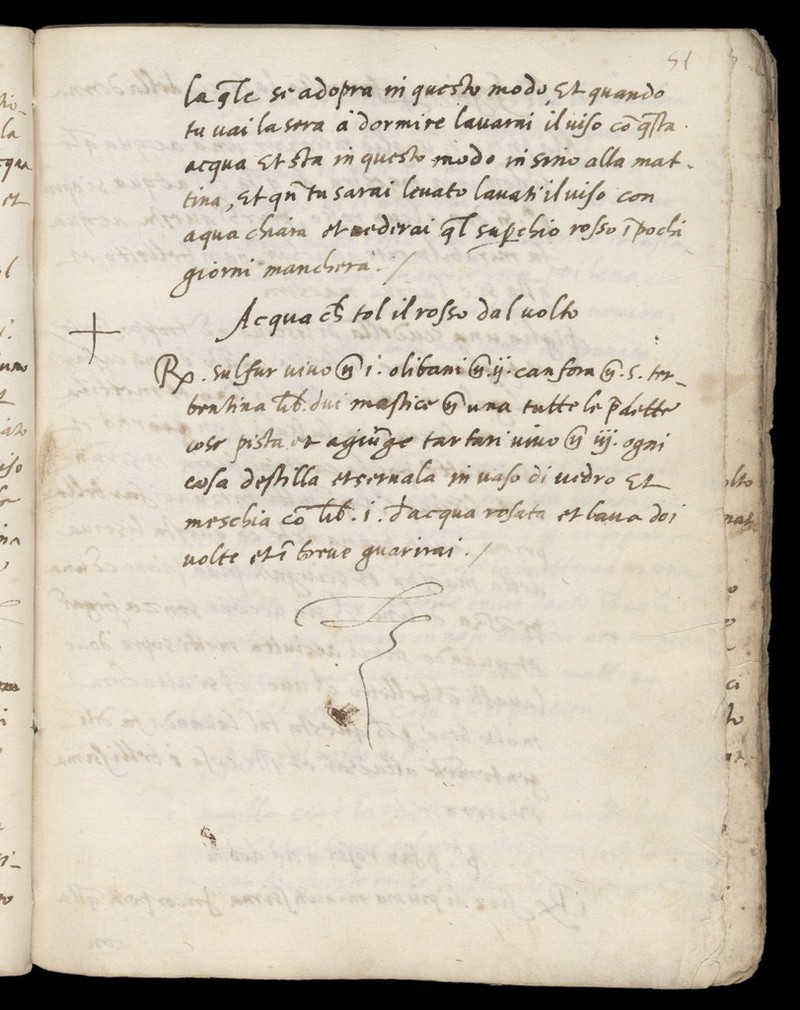 51
la q̃le se adopra in questo modo, Et quando
tu vai la sera à dormire lavarai il viso cõ q̃sta
acqua Et sta in questo modo insino alla mat-
tina, Et qñ tu sarai levato lavati il viso con
aqua chiara et vederai q̃l sup̱chio rosso ĩ pochi
giorni manchera. /
Acqua ch̃ tol il rosso dal volto
Rx. sulfur vivo ℥ i. olibani ℥ ij. canfora ℥. s. ter-
bentina lib. dui mastice ℥ una tutte le p̃dette
cose pista et agiũge tartari vivo ℥ iij. ogni
cosa destilla et servala in vaso di vedro Et
meschia cõ lib. i. d'acqua rosata et lava doi
volte et ĩ breve guarirai. /